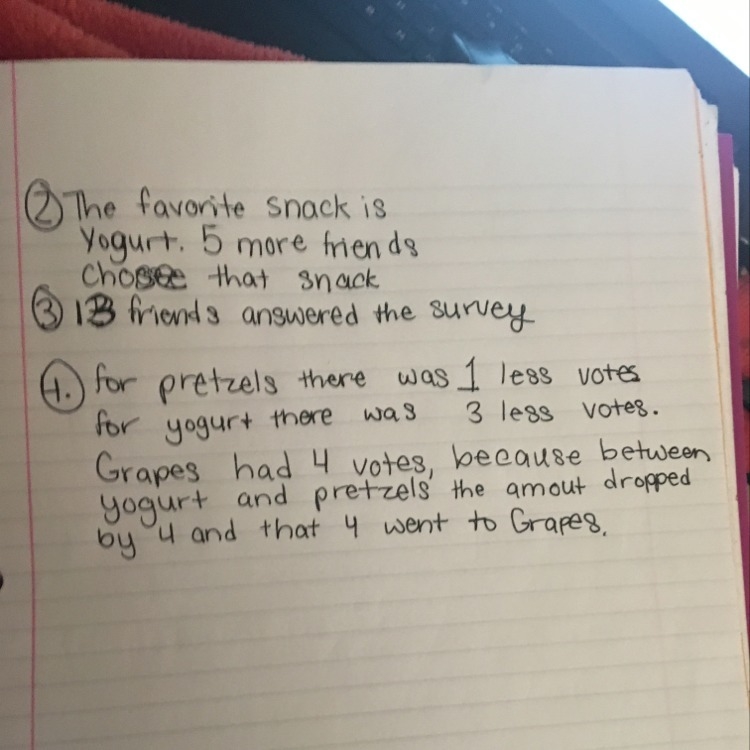 ② The favorite snack is
Yogurt. 5 more friends
chosee that snack
③ 13 friends answered the survey
4. for pretzels there was 1 less votes
for yogurt there was 3 less votes.
Grapes had 4 votes, because between
yogurt and pretzels the amout dropped
by 4 and that 4 went to Grapes.